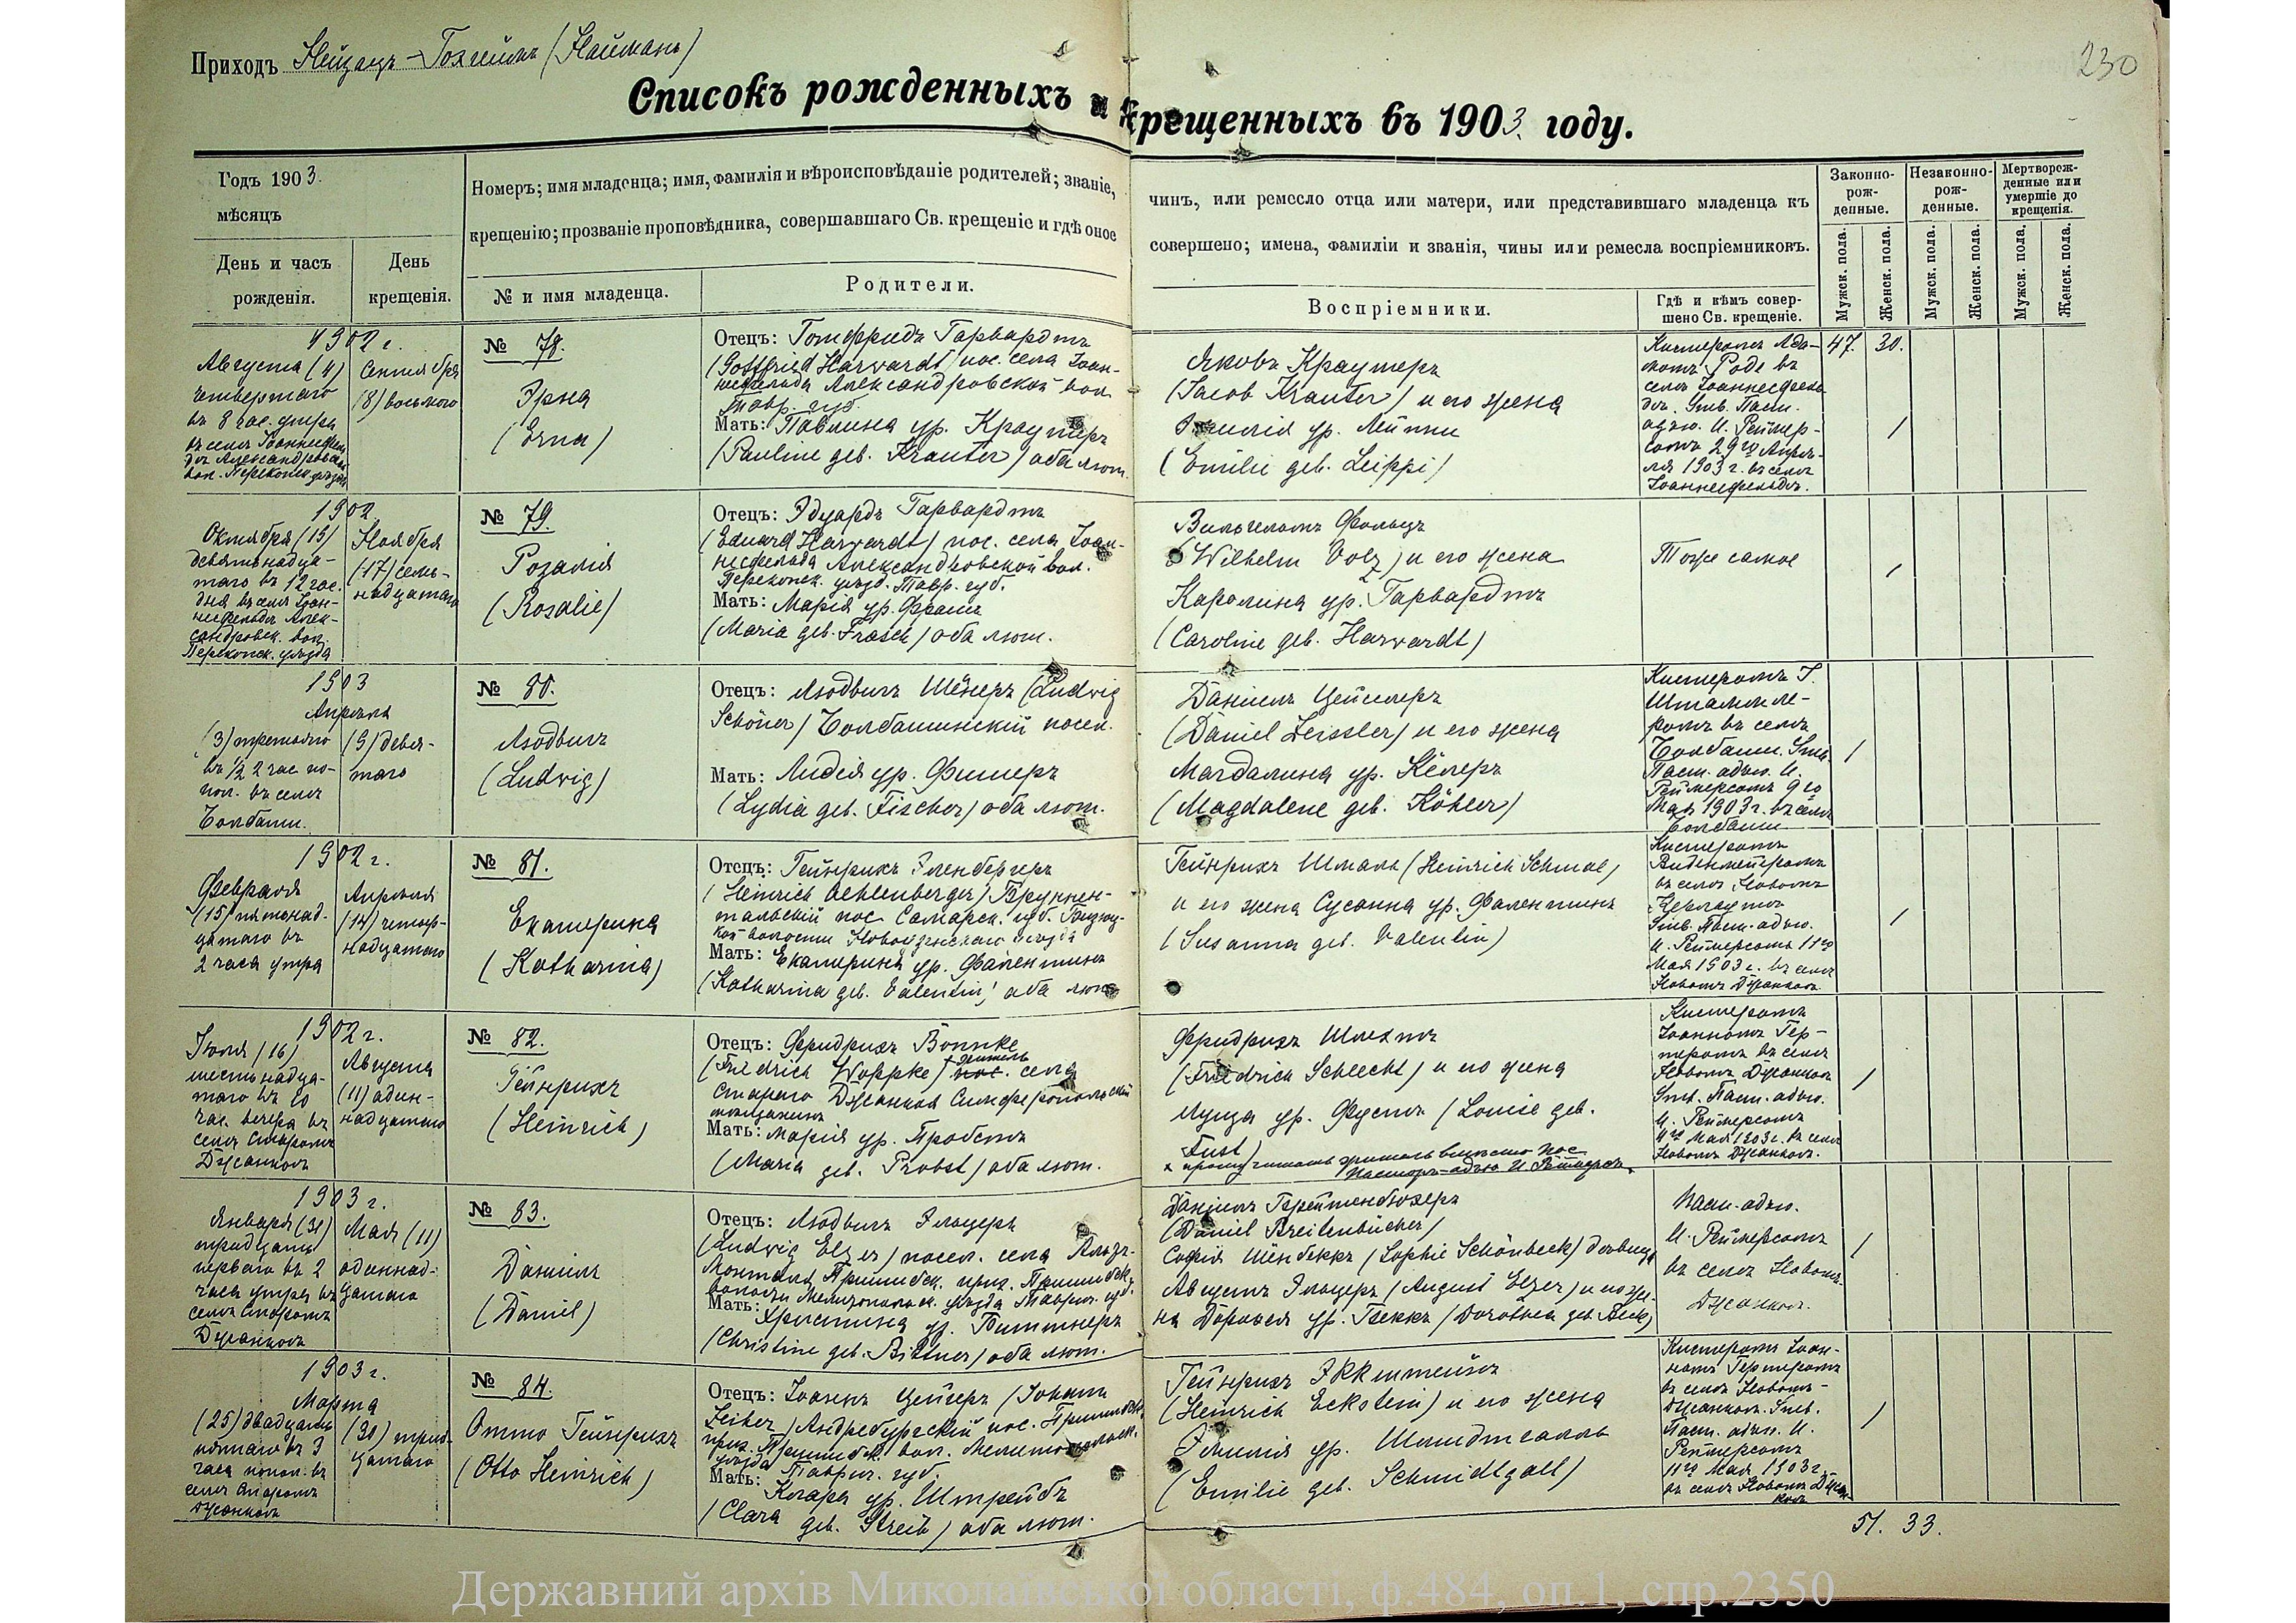 Приходъ Нейзацъ-Гохгеймъ (Найманъ)
230
Списокъ рожденныхъ и крещенныхъ въ 1903. году.
Годъ 1903.
мѣсяцъ
День и часъ рожденія.
День крещенія.
Номеръ; имя младенца; имя, фамилія и вѣроисповѣданіе родителей; званіе,
чинъ, или ремесло отца или матери, или представившаго младенца къ
крещенію; прозваніе проповѣдника, совершавшаго Св. крещеніе и гдѣ оное
совершено; имена, фамиліи и званія, чины или ремесла воспріемниковъ.
№ и имя младенца.
Родители.
Воспріемники.
Гдѣ и кѣмъ совер-
шено Св. крещеніе.
Законно-
рож-
денные.
Незаконно-
рож-
денные.
Мертворож-
денные или
умершіе до
крещенія.
Мужск. пола.
Женск. пола.
Мужск. пола.
Женск. пола.
Мужск. пола.
Женск. пола.
1902 г.
Августа (4)
четвертаго
въ 8 час. утра
въ селѣ Іоаннесфель
дѣ Александровской
вол. Перекопск. уѣзда
Сентября
(8) восьмого
№ 78.
Эрна
(Erna)
Отецъ: Готфридъ Гарвардтъ
(Gottfried Harwardt) пос. села Іоан-
несфельда Александровской вол.
Тавр. губ.
Мать: Павлина ур. Краутеръ
(Pauline geb. Krauter) оба лют.
Яковъ Краутеръ
(Jacob Krauter) и его жена
Эмилія ур. Лейппи
(Emilie geb. Leippi)
Кистеромъ Ада-
момъ Роде въ
селѣ Іоаннесфель
дѣ. Утв. Паст.
адъю. И. Реймер-
сомъ 29го Апрѣ-
ля 1903 г. въ селѣ
Іоаннесфельдѣ.
47. 30.
1
1902.
Октября (19)
девятнадца-
таго въ 12 час.
дня въ селѣ Іоан-
несфельдѣ Алек-
сандровск. вол.
Перекопск. уѣзда
Ноября
(17) сем-
надцатаго
№ 79.
Розалія
(Rosalie)
Отецъ: Эдуардъ Гарвардтъ
(Eduard Harwardt) пос. села Іоан-
несфельда Александровской вол.
Перекопск. уѣзд. Тавр. губ.
Мать: Марія ур. Фрашъ
(Maria geb. Frasch) оба лют.
Вильгельмъ Фольцъ
(Wilhelm Volz) и его жена
Каролина ур. Гарвардтъ
(Caroline geb. Harwardt)
Тоже самое
1
1903
Апрѣля
(3) третьяго
въ 1/2 2 час по-
пол. въ селѣ
Болбаши.
(9) девя-
таго
№ 80.
Людвигъ
(Ludwig)
Отецъ: Людвигъ Шёнеръ (Ludwig
Schöner) Болбашинскій посел.
Мать: Лидія ур. Фишеръ
(Lydia geb. Fischer) оба лют.
Даніилъ Цейслеръ
(Daniel Zeissler) и его жена
Магдалина ур. Кёлеръ
(Magdalene geb. Köhler)
Кистеромъ Г.
Штамле-
ромъ въ селѣ
Болбаши. Утв.
Паст. адъю. И.
Реймерсомъ 9го
Мая 1903 г. въ селѣ
Болбаши
1
1902 г.
Февраля
(15) пятнад-
цатаго въ
2 часа утра
Апрѣля
(14) четыр-
надцатаго
№ 81.
Екатерина
(Katharina)
Отецъ: Гейнрихъ Эленбергеръ
(Heinrich Oehlenberger) Бруннен-
тальскій пос Самарск. губ.
волости Новоузенскаго уѣзда
Мать: Екатерина ур. Фалентинъ
(Katharina geb. Valentin) оба лют
Гейнрихъ Шмаль (Heinrich Schmal)
и его жена Сусанна ур. Фалентинъ
(Susanna geb. Valentin)
Кистеромъ
Виденмейеромъ
въ селѣ Новомъ
Утв. Паст. адъю.
И. Реймерсомъ 11го
Мая 1903 г. въ селѣ
Новомъ Джанкоѣ
1
1902 г.
Іюля (16)
шестнадца-
таго въ 10
час. вечера въ
селѣ Старомъ
Джанкоѣ
Августа
(11) один-
надцатаго
№ 82.
Гейнрихъ
(Heinrich)
Отецъ: Фридрихъ Воппке
(Friedrich Woppke) житель пос. села
Стараго Джанкоя Симферопольскій
мѣщанинъ
Мать: Марія ур. Пробстъ
(Maria geb. Probst) оба лют.
Фридрихъ Шлехтъ
(Friedrich Schlecht) и его жена
Луиза ур. Фустъ (Louise geb.
Fust)
х прошу читать житель вмѣсто пос.
Пасторъ-адъю И. Реймерсъ.
Кистеромъ
Іоанномъ Гер-
теромъ въ селѣ
Новомъ Джанкоѣ
Утв. Паст. адъю.
И. Реймерсомъ
11го Мая 1903 г. въ селѣ
Новомъ Джанкоѣ.
1
1903 г.
Января (31)
тридцать
перваго въ 2
часа утра въ
селѣ Старомъ
Джанкоѣ
Мая (11)
одиннад-
цатаго
№ 83.
Даніилъ
(Daniel)
Отецъ: Людвигъ Эльцеръ
(Ludwig Elzer) посел. села Альт-
Монталь Пришибск. прих. Пришибск.
волости Мелитопольск. уѣзда Таврич. губ.
Мать: Христина ур. Биттнеръ
(Christine geb. Bittner) оба лют.
Даніилъ Брейтенбюхеръ
(Daniel Breitenbücher)
Софія Шёнбеккъ (Sophie Schönbeck) дѣвица
Августъ Эльцеръ (August Elzer) и его же-
на Доротея ур. Беккъ (Dorothea geb. Beck)
Паст. адъю.
И. Реймерсомъ
въ селѣ Новомъ
Джанкоѣ.
1
1903 г.
Марта
(25) двадцать
пятаго въ 3
часа попол. въ
селѣ Старомъ
Джанкоѣ
(30) трид-
цатаго
№ 84.
Отто Гейнрихъ
(Otto Heinrich)
Отецъ: Іоаннъ Цейгеръ (Johann
Андребургскій пос. Пришибск.
прих. Пришибск. вол. Мелитопольск.
уѣзда Таврич. губ.
Мать: Клара ур. Штрейбъ
(Clara geb. Streib) оба лют.
Гейнрихъ Эккштейнъ
(Heinrich Eckstein) и его жена
Эмилія ур. Шмидтгалль
(Emilie geb. Schmidtgall)
Кистеромъ Іоан-
номъ Гертеромъ
въ селѣ Новомъ-
Джанкоѣ. Утв.
Паст. адъю. И.
Реймерсомъ
11го Мая 1903 г.
въ селѣ Новомъ Джан-
коѣ
1
51. 33.
Державний архів Миколаївської області, ф.484, оп.1, спр.2350